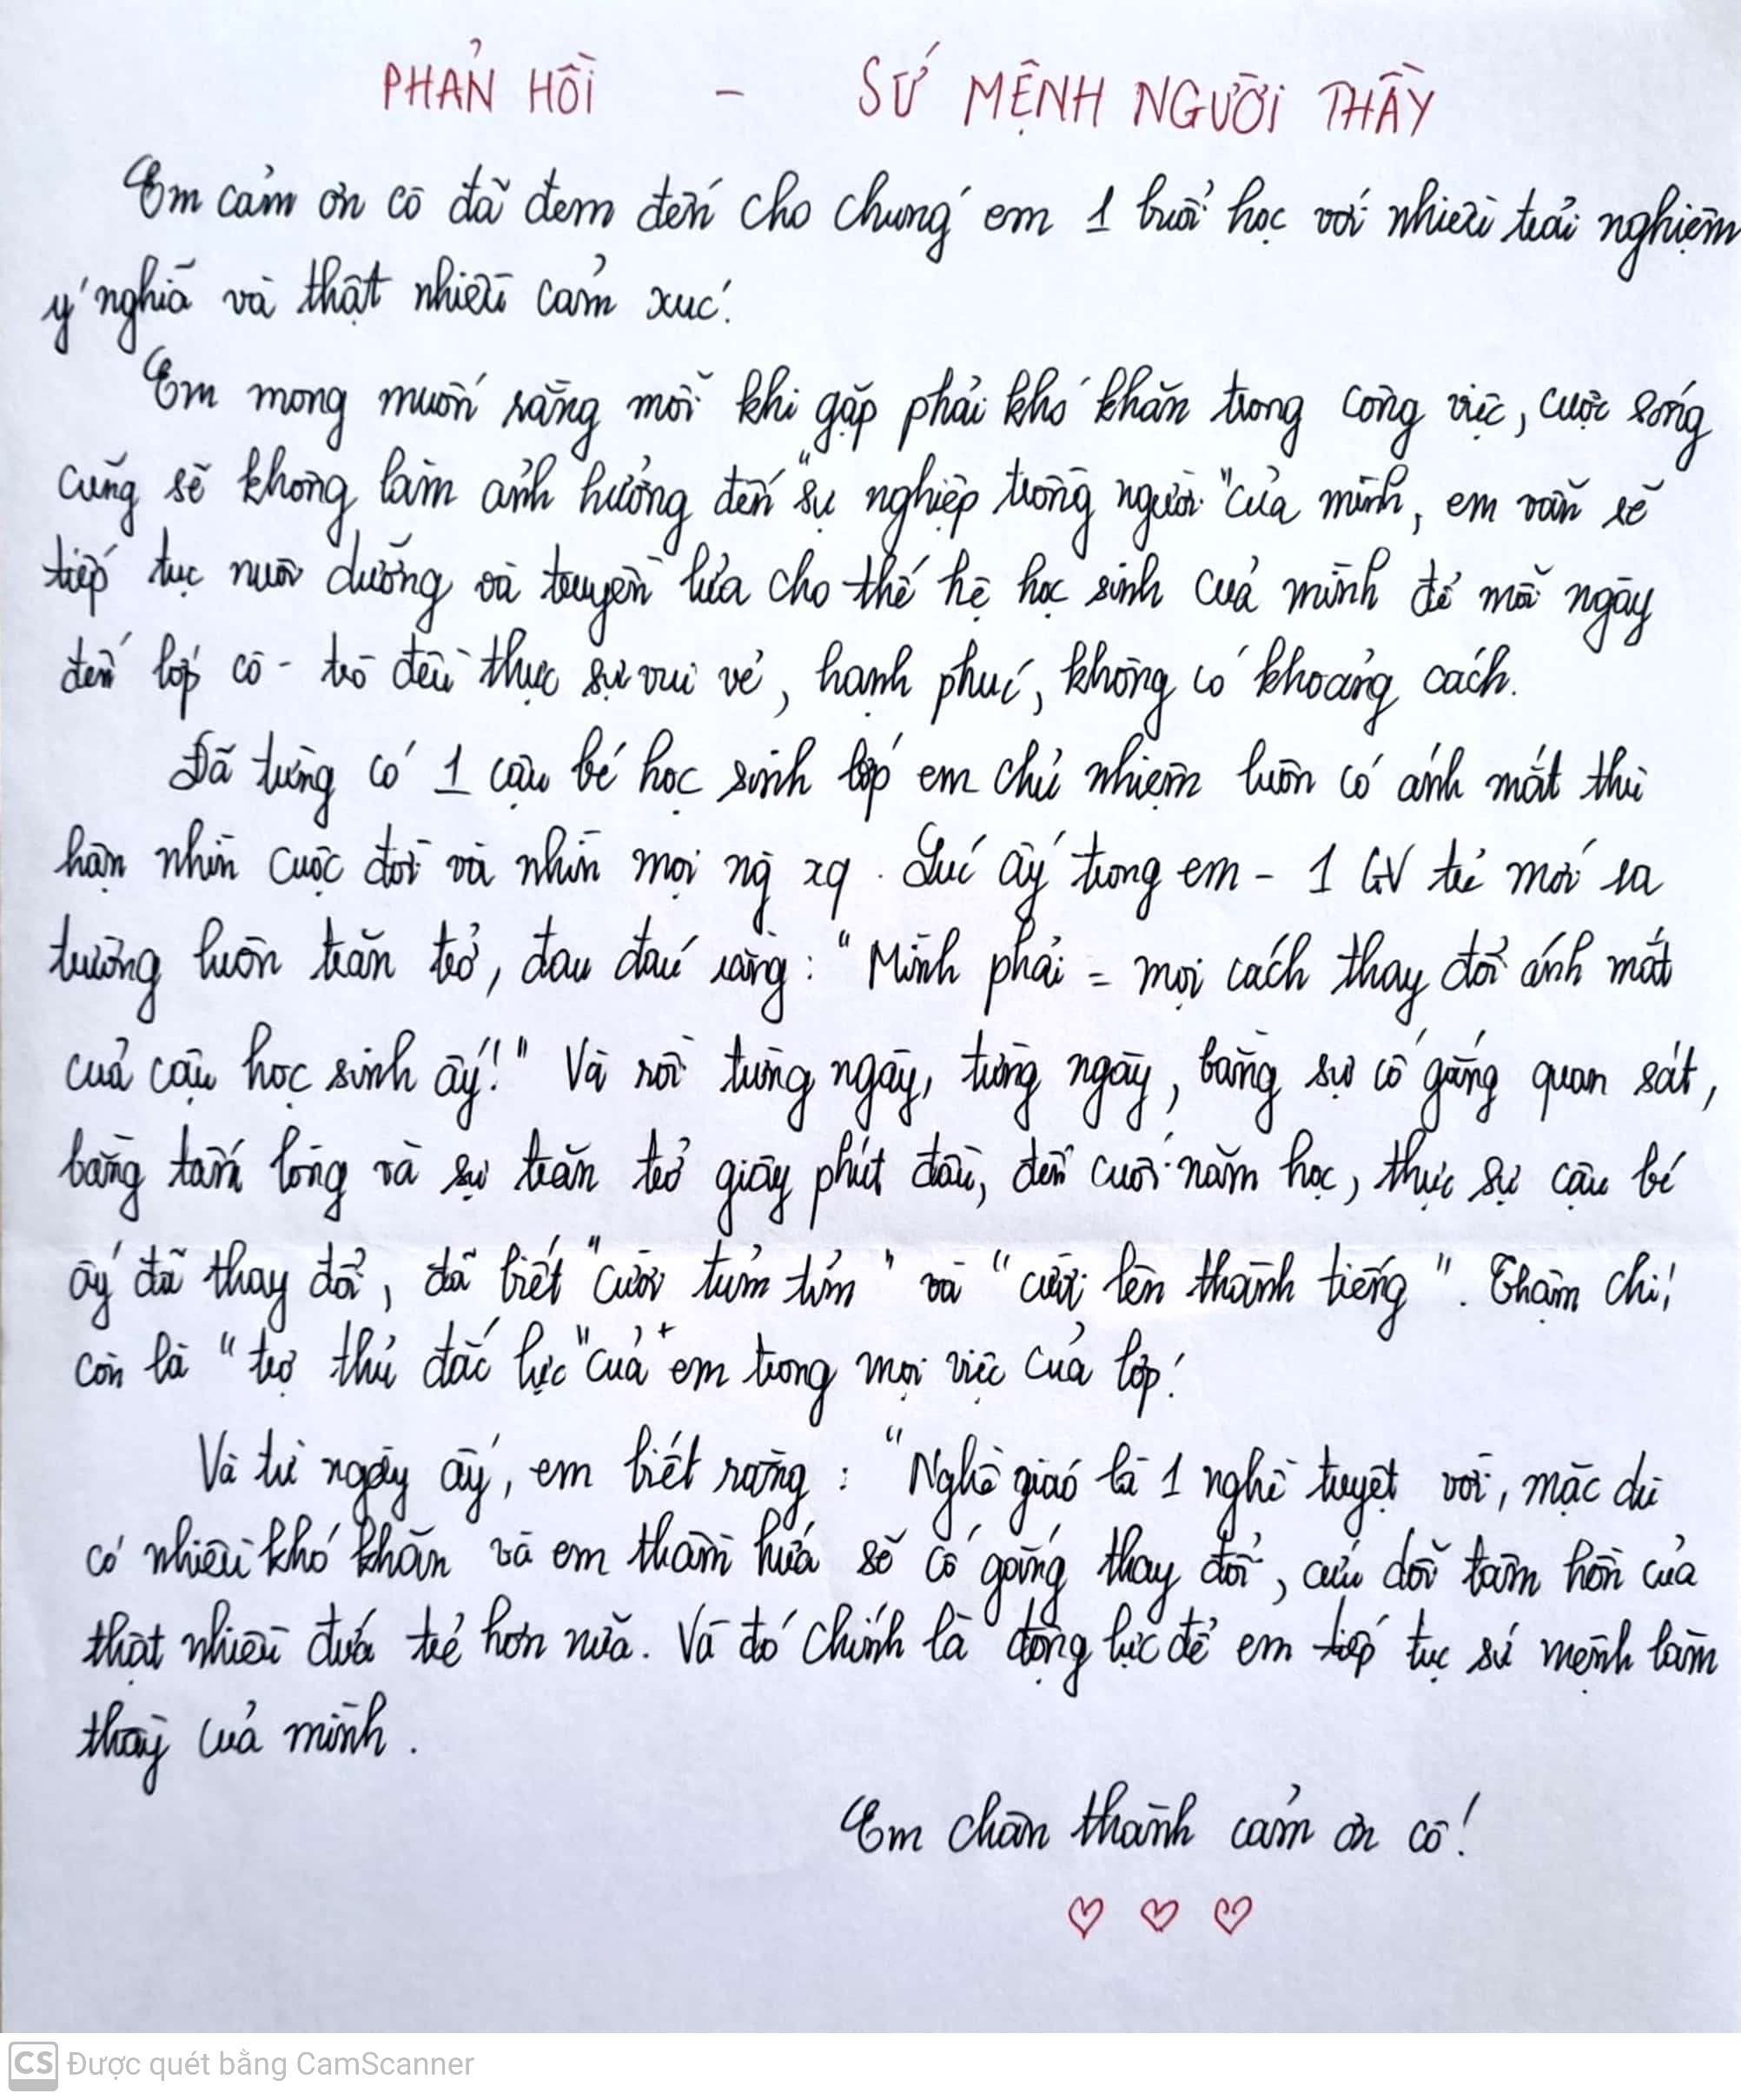 PHẢN HỒI - SỨ MỆNH NGƯỜI THẦY
Em cảm ơn cô đã đem đến cho chúng em 1 buổi học với nhiều trải nghiệm
ý nghĩa và thật nhiều cảm xúc!
Em mong muốn rằng mỗi khi gặp phải khó khăn trong công việc, cuộc sống
cũng sẽ không làm ảnh hưởng đến "sự nghiệp trồng người" của mình, em vẫn sẽ
tiếp tục nuôi dưỡng và truyền lửa cho thế hệ học sinh của mình để mỗi ngày
đến lớp cô - trò đều thực sự vui vẻ, hạnh phúc, không có khoảng cách.
Đã từng có 1 cậu bé học sinh lớp em chủ nhiệm luôn có ánh mắt thù
hận nhìn cuộc đời và nhìn mọi ng xq. Lúc ấy trong em - 1 GV trẻ mới ra
trường luôn trăn trở, đau đáu rằng: "Mình phải = mọi cách thay đổi ánh mắt
của cậu học sinh ấy!" Và rồi từng ngày, từng ngày, bằng sự cố gắng quan sát,
bằng tấm lòng và sự trăn trở giây phút đầu, đến cuối năm học, thực sự cậu bé
ấy đã thay đổi, đã biết "cười tủm tỉm" và "cười lên thành tiếng". Thậm chí!
còn là "trợ thủ đắc lực" của em trong mọi việc của lớp!
Và từ ngày ấy, em biết rằng: "Nghề giáo là 1 nghề tuyệt vời, mặc dù
có nhiều khó khăn và em thầm hứa sẽ cố gắng thay đổi, cứu dỗi tâm hồn của
thật nhiều đứa trẻ hơn nữa. Và đó chính là động lực để em tiếp tục sứ mệnh làm
thầy của mình.
Em chân thành cảm ơn cô!
CS Được quét bằng CamScanner